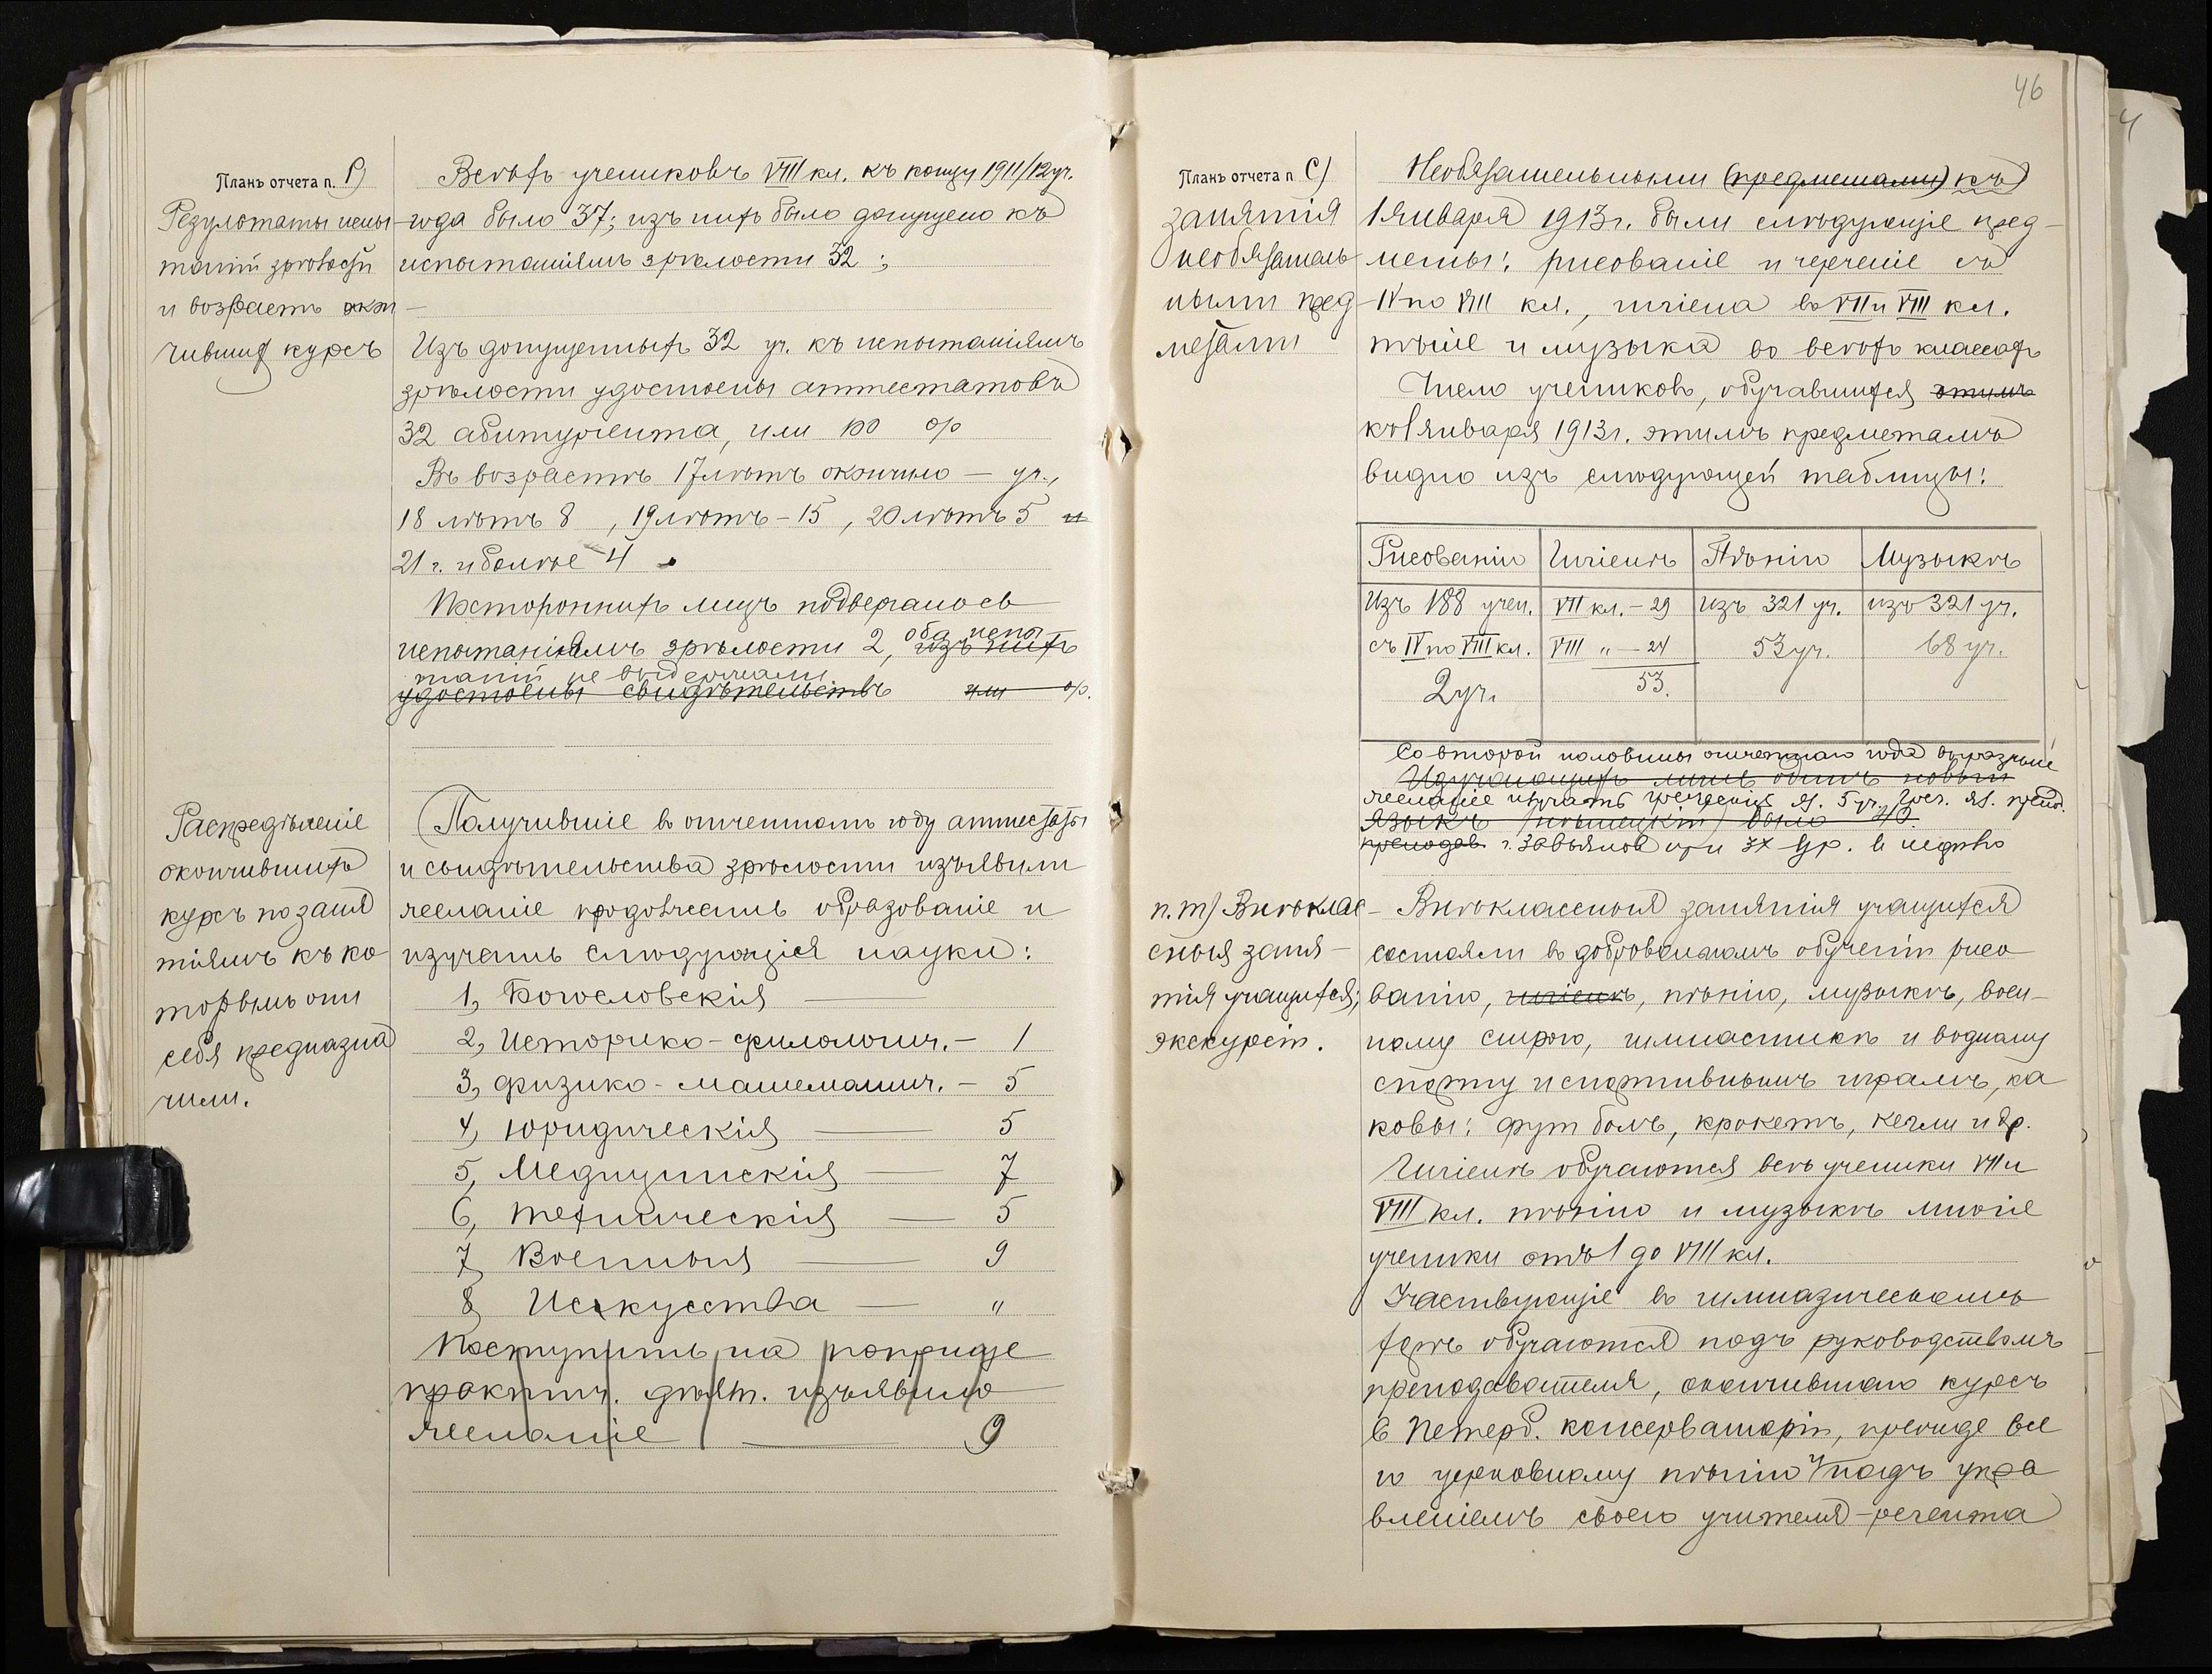 Планъ отчета п. Р)
Результаты испы-
таній зрѣлости
и возрастъ окон
чившихъ курсъ
Всѣхъ учениковъ VIII кл. къ концу 1911/12 уч.
года было 37; изъ нихъ было допущено къ
испытаніямъ зрѣлости 32;
Изъ допущенныхъ 32 уч. къ испытаніямъ
зрѣлости удостоены аттестатовъ
32 абитуріента, или 100 %
Въ возрастѣ 17 лѣтъ окончило — уч.,
18 лѣтъ 8 , 19 лѣтъ - 15 , 20 лѣтъ 5 и
21 г. и болѣе - 4
Постороннихъ лицъ подвергалось
испытаніямъ зрѣлости 2, изъ нихъ
оба испы
таній не выдержали
удостоены свидѣтельствъ или %.
Распредѣленіе
окончившихъ
курсъ по заня
тіямъ къ ко
торымъ они
себя предназна
чили.
Получившіе въ отчетномъ году аттестаты
и свидѣтельства зрѣлости изъявили
желаніе продолжать образованіе и
изучать слѣдующія науки:
1, Богословскія —
2, Историко-филологич. — 1
3, физико-математич. — 5
4, юридическія — 5
5, Медицинскія — 7
6, техническія — 5
7, Военныя — 9
8, Искусства — "
Поступить на поприще
практич. дѣят. изъявило
желаніе — 9
46
Планъ отчета п. С)
занятія
необязатель
ными пред
метами
Необязательными (предметами) къ
1 января 1913 г. были слѣдующіе пред-
меты: рисованіе и черченіе съ
IV по VIII кл., гигіена въ VII и VIII кл.
пѣніе и музыка во всѣхъ классахъ
Число учениковъ, обучавшихся этимъ
къ 1 января 1913 г. этимъ предметамъ
видно изъ слѣдующей таблицы:
Рисованію | Гигіенѣ | Пѣнію | Музыкѣ
Изъ 188 учен. | VII кл. - 29 | изъ 321 уч. | изъ 321 уч.
съ IV по VIII кл. | VIII " - 24 | 53 уч. | 68 уч.
2 уч. | 53.
Со второй половины отчетнаго года выразили
Изучающихъ лишь одинъ новый
желаніе изучать греческій яз. 5 уч., Греч. яз. препод.
языкъ (нѣмецкій) было 40.
преподав. г. Завьялов при 3х ур. въ недѣлю
п. т) Внѣклас
сныя заня-
тія учащихся;
экскурсіи.
Внѣклассныя занятія учащихся
состояли въ добровольномъ обученіи рисо
ванію, гигіенѣ, пѣнію, музыкѣ, воен-
ному строю, гимнастикѣ и водному
спорту и спортивнымъ играмъ, ка
ковы: футболъ, крокетъ, кегли и др.
Гигіенѣ обучаются всѣ ученики VII и
VIII кл. пѣнію и музыкѣ многіе
ученики отъ I до VIII кл.
Участвующіе въ гимназическомъ
хорѣ обучаются подъ руководствомъ
преподавателя, окончившаго курсъ
въ Петерб. консерваторіи, прежде все
го церковному пѣнію подъ упра
вленіемъ своего учителя-регента